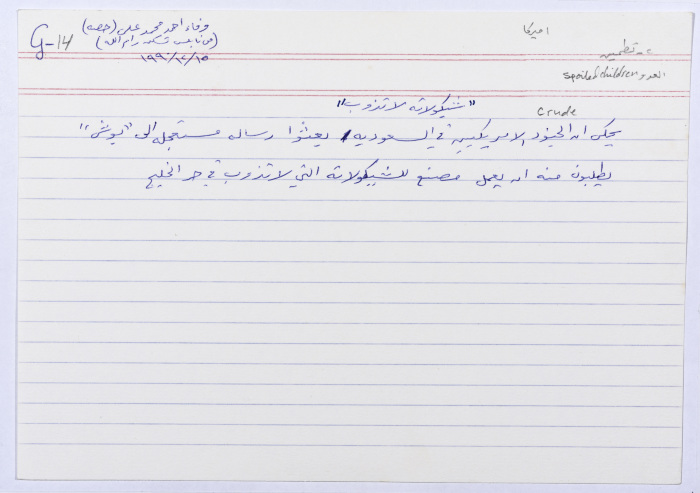 G-14
وفاء احمد محمد علي (حصه)
(من نابلس تسكن رام الله)
١٩٩٠/١٢/١٥
امريكا
٤- تطمين
العدو spoiled children
crude
"شيكولاته لا تذوب"
يحكى ان الجنود الامريكيين في السعوديه بعثوا رساله مستعجله الى "بوش"
يطلبون منه ان يعمل مصنع للشيكولاته التي لا تذوب في حر الخليج